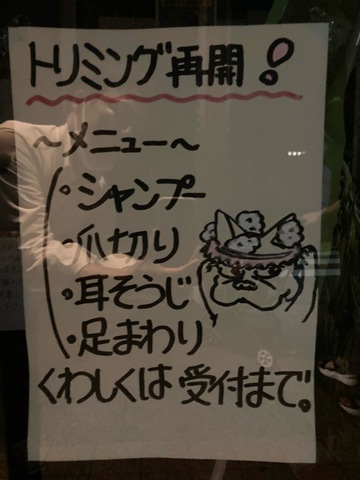 トリミング再開!
～メニュー～
・シャンプー
・爪切り
・耳そうじ
・足まわり
くわしくは受付まで。